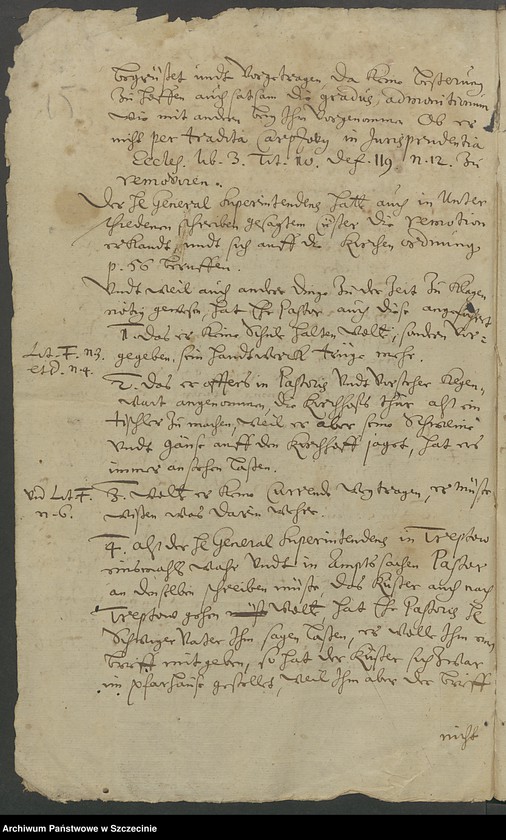 begrüßet undt Vorgetragen da keine beßerung
Zu hoffen auch satsam die gradus admonitionum
wie mit andern bey Ihm vorgenommen Ob er
nicht per tradita Carpzovij in Jurisprudentia
Eccles. lib. 3. Tit. 10. def. 119 n. 12. Zu
removiren.
Der H General Superintendens hatt auch in Unter
schiedenen schreiben gesagtem Cüster die remotion
erklandt, undt sich auff die Kirchen ordnung
p. 56 beruffen.
Undt weil auch andere dinge Zu der Zeit Zu klagen
nötig gewesen, hat Ehr Pastor auch diese angeführet
1. das er keine Schule halten wolt, sondern vor-
Lit. F. n3. gegeben, sein handtwerck trüge mehr.
et D. n4.
2. das er offters in Pastoris Undt Vorsteher kegen-
wart angenommen, die Kirchhoffs thür alß ein
tischler Zu machen, weil er aber seine Schweine
Undt gänse auff den Kirchhoff jaget, hat ers
immer anstehen laßen.
vid Lit. F.
n. 6.
3. Wolt er keine Currende wegtragen, er müste
wißen was darin wehre.
4. alß der H General Superintendens in Treptow
einsmahls wahr Undt in Ampts sachen Pastor
an denselben schreiben müste, das Küster auch nach
Treptow gehen wolt, hat Ehr Pastoris H
Schwiger Vater Ihm sagen laßen, er wolle Ihm ein
brieff mitgeben, so hat der Küster sich Zwar
im pfarhause gestellet, weil Ihm aber der brieff
nicht
Archiwum Państwowe w Szczecinie